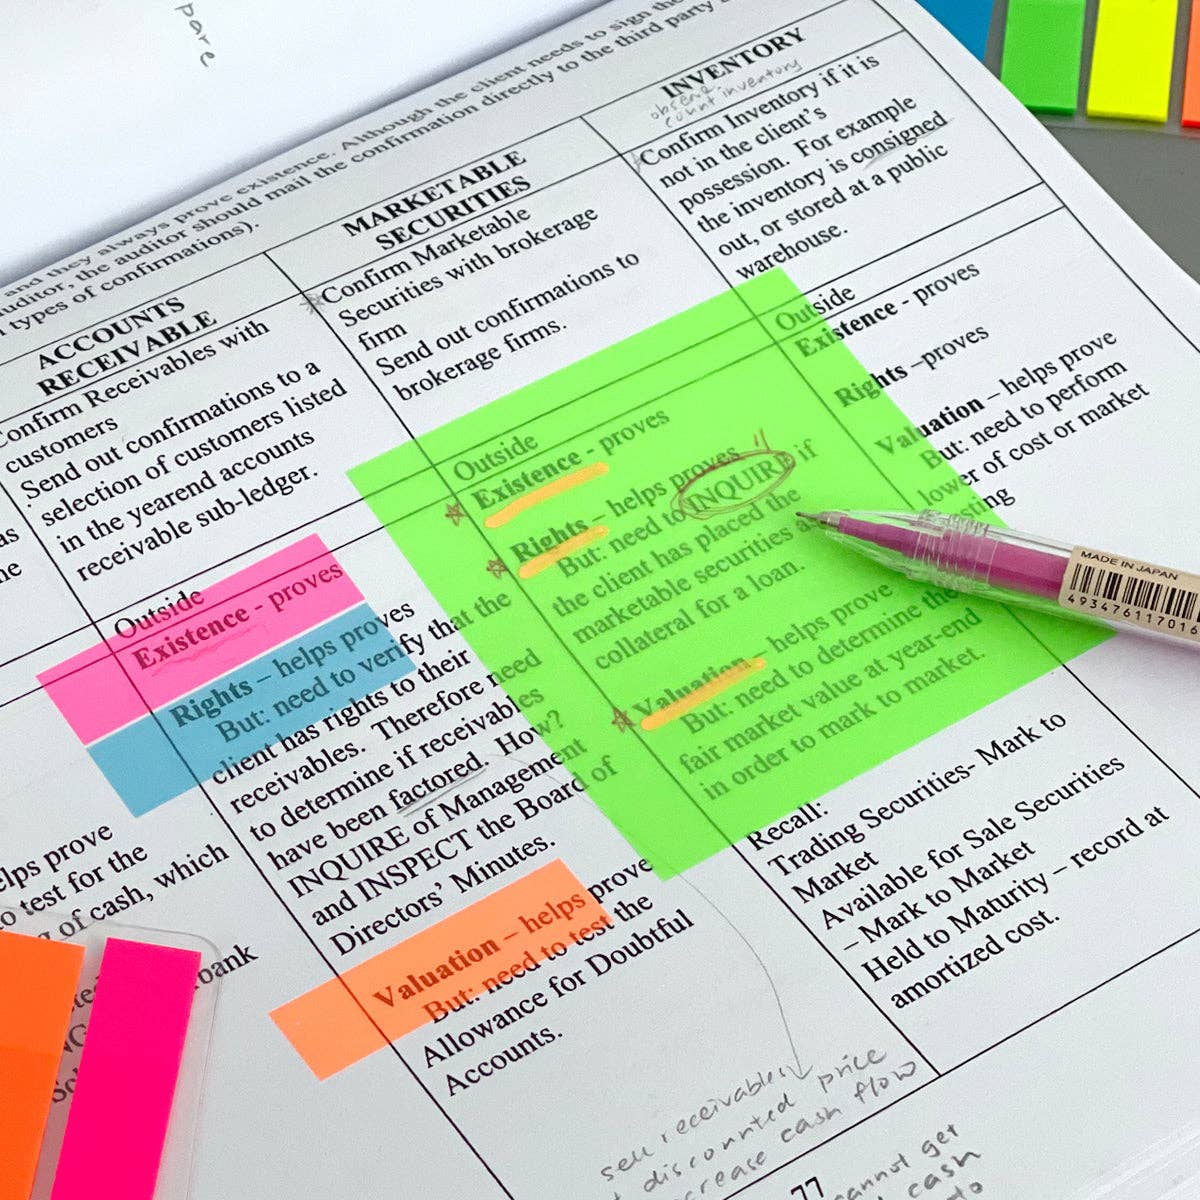 pare
and they always prove existence. Although the client needs to sign the
auditor, the auditor should mail the confirmation directly to the third party
types of confirmations).
ACCOUNTS
RECEIVABLE
Confirm Receivables with
customers
Send out confirmations to a
selection of customers listed
in the yearend accounts
receivable sub-ledger.
Outside
Existence - proves
Rights – helps proves
But: need to verify that the
client has rights to their
receivables. Therefore need
to determine if receivables
have been factored. How?
INQUIRE of Management
and INSPECT the Board of
Directors' Minutes.
Valuation – helps prove
But: need to test the
Allowance for Doubtful
Accounts.
MARKETABLE
SECURITIES
Confirm Marketable
Securities with brokerage
firm
Send out confirmations to
brokerage firms.
Outside
Existence - proves
Rights – helps proves
But: need to INQUIRE if
the client has placed the
marketable securities as
collateral for a loan.
Valuation – helps prove
But: need to determine the
fair market value at year-end
in order to mark to market.
Recall:
Trading Securities- Mark to
Market
Available for Sale Securities
– Mark to Market
Held to Maturity – record at
amortized cost.
INVENTORY
count inventory
Confirm Inventory if it is
not in the client's
possession. For example
the inventory is consigned
out, or stored at a public
warehouse.
Outside
Existence - proves
Rights –proves
Valuation – helps prove
But: need to perform
lower of cost or market
MADE IN JAPAN
493476117016
helps prove
to test for the
of cash, which
bank
sell receivables
discounted price
cash flow
77
cannot get
cash
to